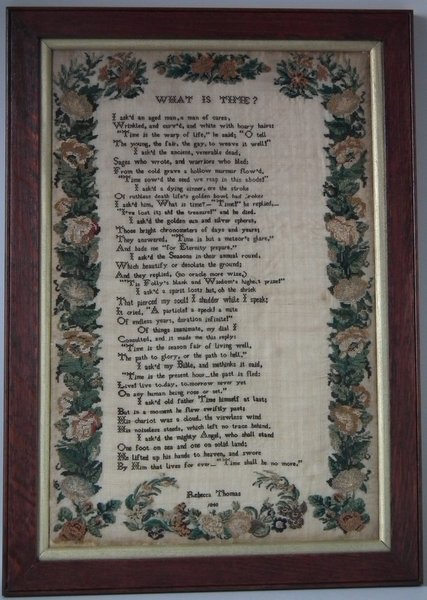 WHAT IS TIME?
I ask'd an aged man, a man of cares,
Wrinkled, and curv'd, and white with hoary hairs:
"Time is the warp of life," he said; "O tell
The young, the fair, the gay, to weave it well!"
I ask'd the ancient, venerable dead,
Sages who wrote, and warriors who bled:
From the cold grave a hollow murmur flow'd,
"Time sow'd the seed we reap in this abode!"
I ask'd a dying sinner, ere the stroke
Of ruthless death life's golden bowl had broke
I ask'd him, What is time?— "Time!" he replied,
"I've lost it; ah! the treasure!" and he died.
I ask'd the golden sun and silver spheres,
Those bright chronometers of days and years;
They answered, "Time is but a meteor's glare,"
And bade me "for Eternity prepare."
I ask'd the Seasons in their annual round,
Which beautify or desolate the ground;
And they replied, (no oracle more wise,)
"'Tis Folly's blank and Wisdom's highest prize!"
I ask'd a spirit lost; but, oh the shriek
That pierced my soul! I shudder while I speak;
It cried, "A particle! a speck! a mite
Of endless years, duration infinite!"
Of things inanimate, my dial I
Consulted, and it made me this reply:
"Time is the season fair of living well,
The path to glory, or the path to hell."
I ask'd my Bible, and methinks it said,
"Time is the present hour—the past is fled;
Live! live to-day, to-morrow never yet
On any human being rose or set."
I ask'd old father Time himself at last;
But in a moment he flew swiftly past;
His chariot was a cloud, the viewless wind
His noiseless steeds, which left no trace behind.
I ask'd the mighty Angel, who shall stand
One foot on sea and one on solid land;
He lifted up his hands to heaven, and swore
By Him that lives for ever— "Time shall be no more."
Rebecca Thomas